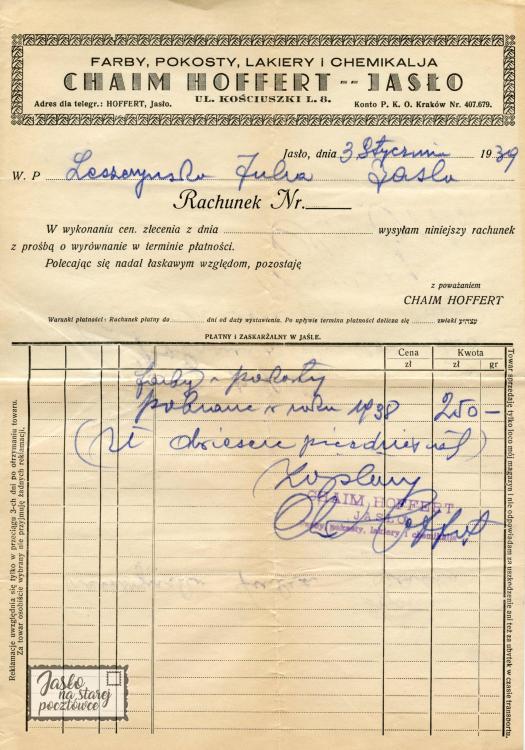 FARBY, POKOSTY, LAKIERY I CHEMIKALJA
CHAIM HOFFERT -- JASŁO
UL. KOŚCIUSZKI L. 8.
Adres dla telegr.: HOFFERT, Jasło.
Konto P. K. O. Kraków Nr. 407.679.
Jasło, dnia 3 Stycznia 1939
W. P. Leszczynska Julia Jasło
Rachunek Nr.
W wykonaniu cen. zlecenia z dnia wysyłam niniejszy rachunek
z prośbą o wyrównanie w terminie płatności.
Polecając się nadal łaskawym względom, pozostaję
z poważaniem
CHAIM HOFFERT
Warunki płatności: Rachunek płatny do dni od daty wystawienia. Po upływie terminu płatności dolicza się zwłoki
PŁATNY I ZASKARŻALNY W JAŚLE.
Cena Kwota
zł zł gr
farby pokosty
pobrane w roku 1938 250 —
(zł dwieście pięćdziesiąt)
CHAIM HOFFERT
JASŁO
Farby, pokosty, lakiery i chemikalja
Reklamacje uwzględnia się tylko w przeciągu 3-ch dni po otrzymaniu towaru.
Za towar osobiście wybrany nie przyjmuję żadnych reklamacji.
Towar sprzedaję tylko loco mój magazyn i nie odpowiadam za uszkodzenie ani też za ubytek w czasie transportu.
Jasło
na starej
pocztówce